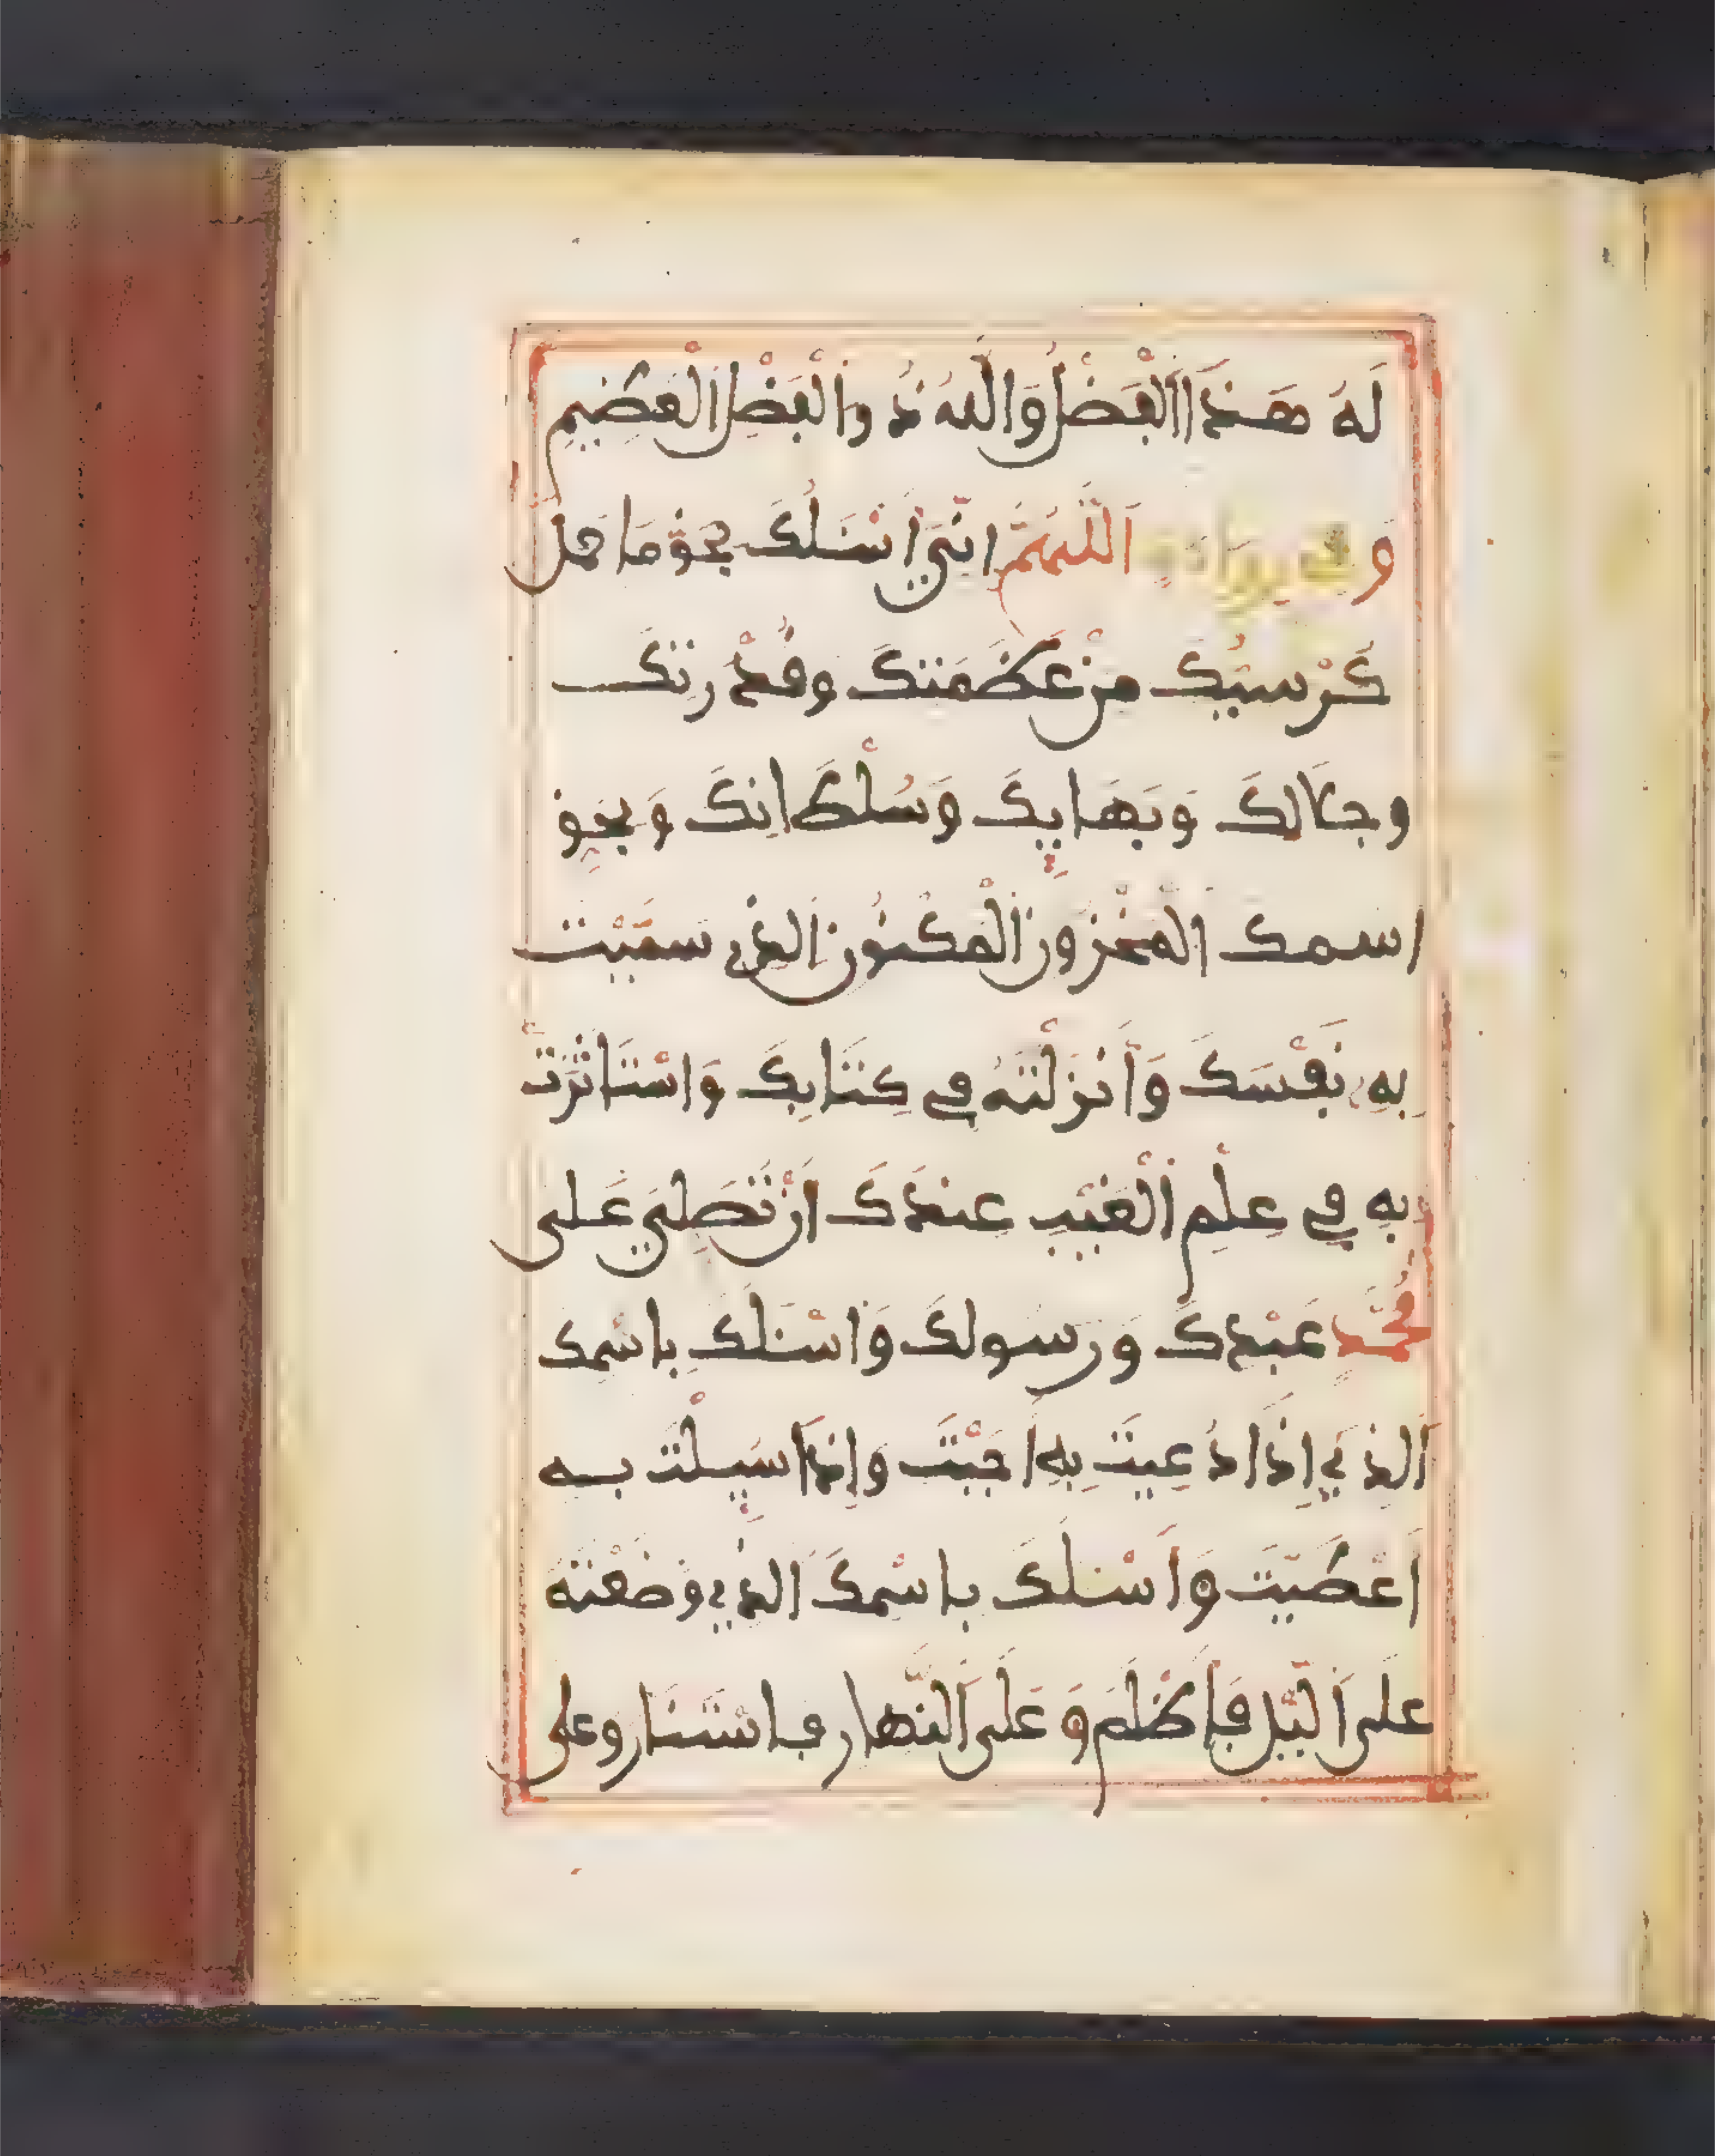 لَهُ هَذَا اَلْفَضْلُ وَاللَّهُ ذُو اَلْفَضْلِ اَلْعَظِيمِ
وَفِي رِوَايَةٍ اَللَّهُمَّ اِنِّيَ أَسْئَلُكَ بِحَقِّ مَا حمل
كُرْسِيُّكَ مِنْ عَظَمَتِكَ وَقُدْرَتِكَ
وجلَالكَ وَبَهَايِكَ وَسُلْطَانِكَ وَبِحَقِّ
اسمك المخْزُون اَلْمَكْنُون اَلذِي سَمَّيْتَ
بِهِ نَفْسَكَ وَأَنْزَلْتَهُ فِي كِتَابِكَ وَاسْتَاثَرْتَ
بِهِ فِي عِلْمِ اَلْغَيْبِ عِندَكَ أَنْ تُصَلِّيَ عَلَى
مُحَمَّدٍ عَبْدِكَ وَرَسولكَ وَاسْئَلُكَ بِاسْمِكَ
اَلذِي إِذَا دُعِيتَ بِهِ أَجَبْتَ وَإِذَا سُيِلْتَ بِه
اَعْطَيْتَ وَأَسْئلُكَ بِاسْمِكَ الذِي وَضَعْتَهُ
عَلَى اَليْلِ فَأَظْلَمَ وَعَلَى اَلنَّهارِ فاسْتَنَارَ وعلى